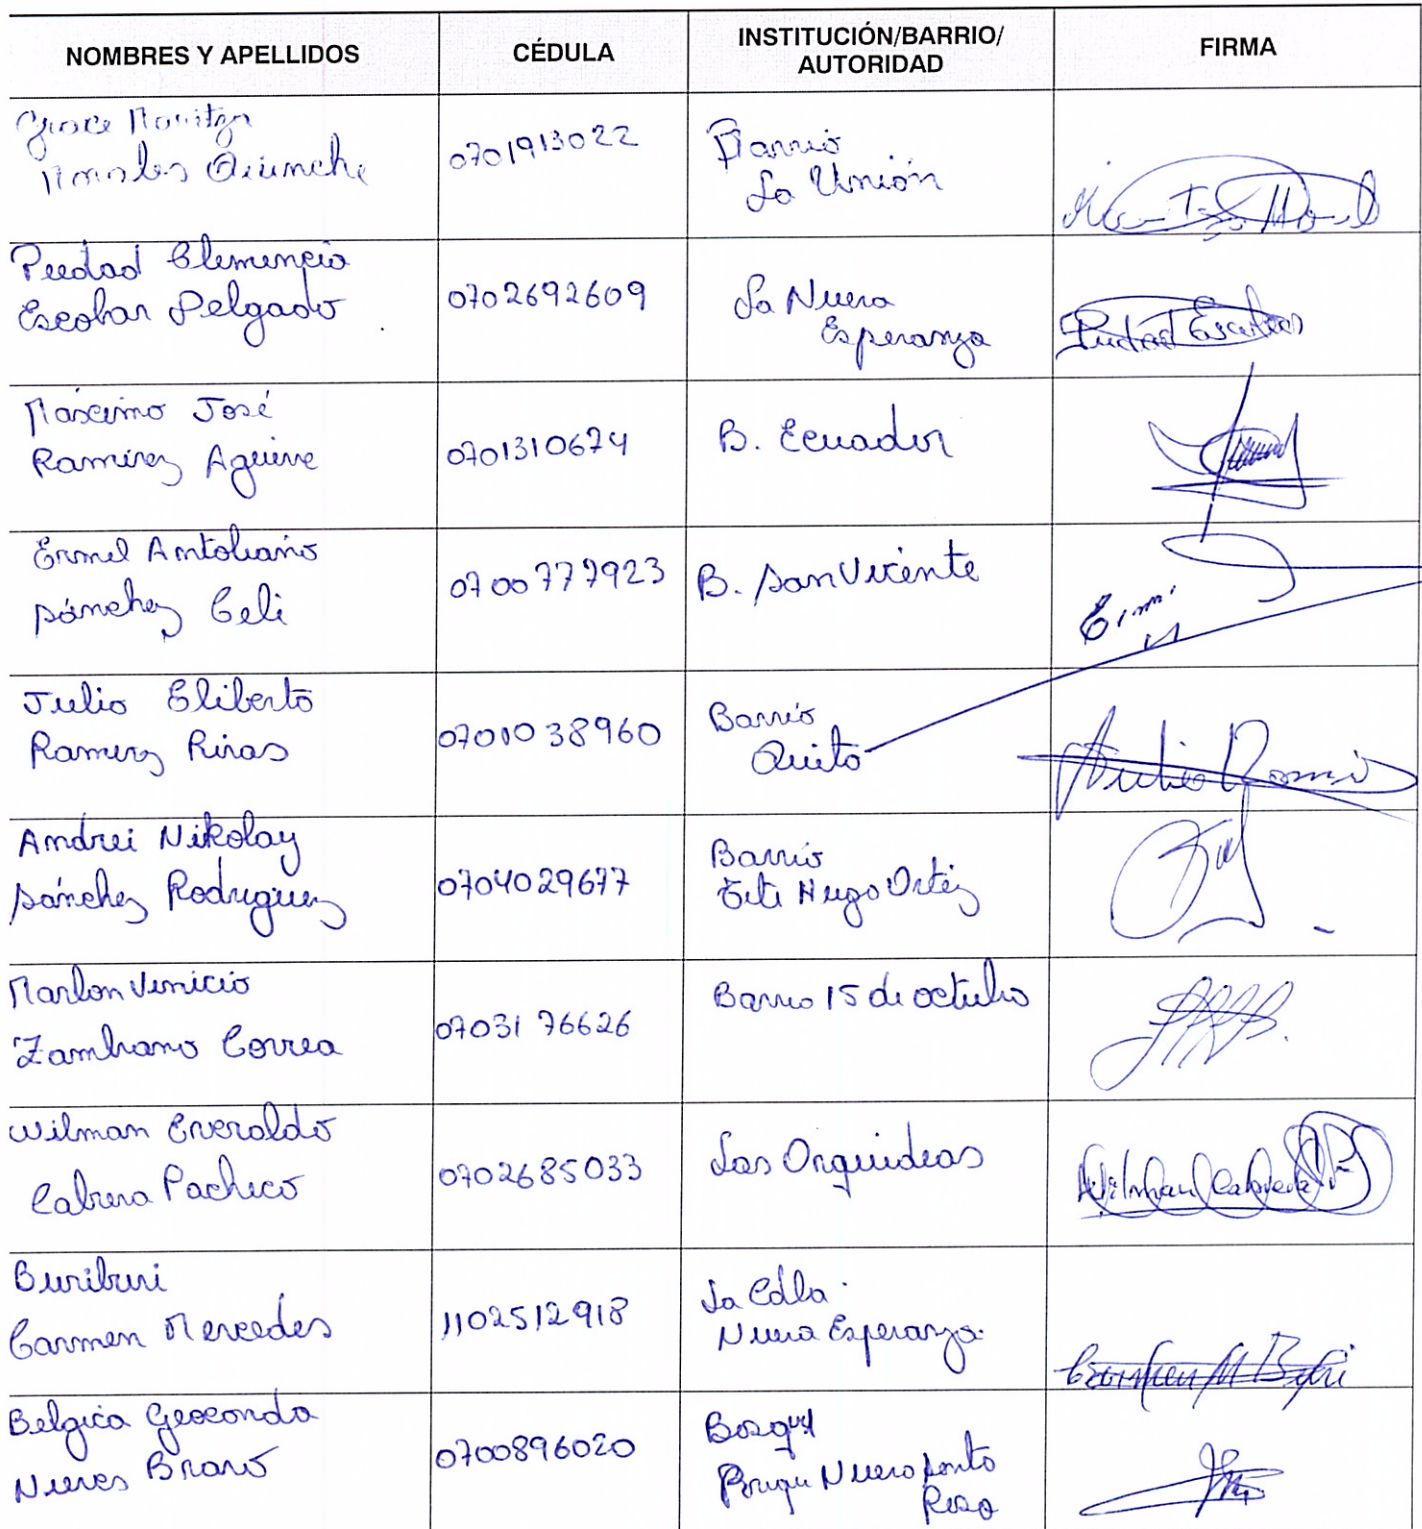 NOMBRES Y APELLIDOS
CÉDULA
INSTITUCIÓN/BARRIO/
AUTORIDAD
FIRMA
Grace Maritza
Morales
0701913022
Barrio
La Unión
Piedad Clemencia
Escobar Delgado
0702692609
La Nueva
Esperanza
Piedad Escobar
Máximo José
Ramírez Aguirre
0701310674
B. Ecuador
Ermel Antoliano
Sánchez Celi
0700777923
B. San Vicente
Julio Eliberto
Ramirez Rivas
0701038960
Barrio
Quito
Julio Rami
Andrei Nikolay
Sánchez Rodriguez
0704029677
Barrio
Hugo Ortiz
Marlon Vinicio
Zambrano Correa
0703176626
Barrio 15 de octubre
Wilman Everaldo
Cabrera Pacheco
0702685033
Las Orquideas
Wilman Cabrera
Buriburi
Carmen Mercedes
1102512918
La Cdla.
Nueva Esperanza.
Carmen M
Belgica Geoconda
Nieves Bravo
0700896020
Nuevo Santa
Rosa